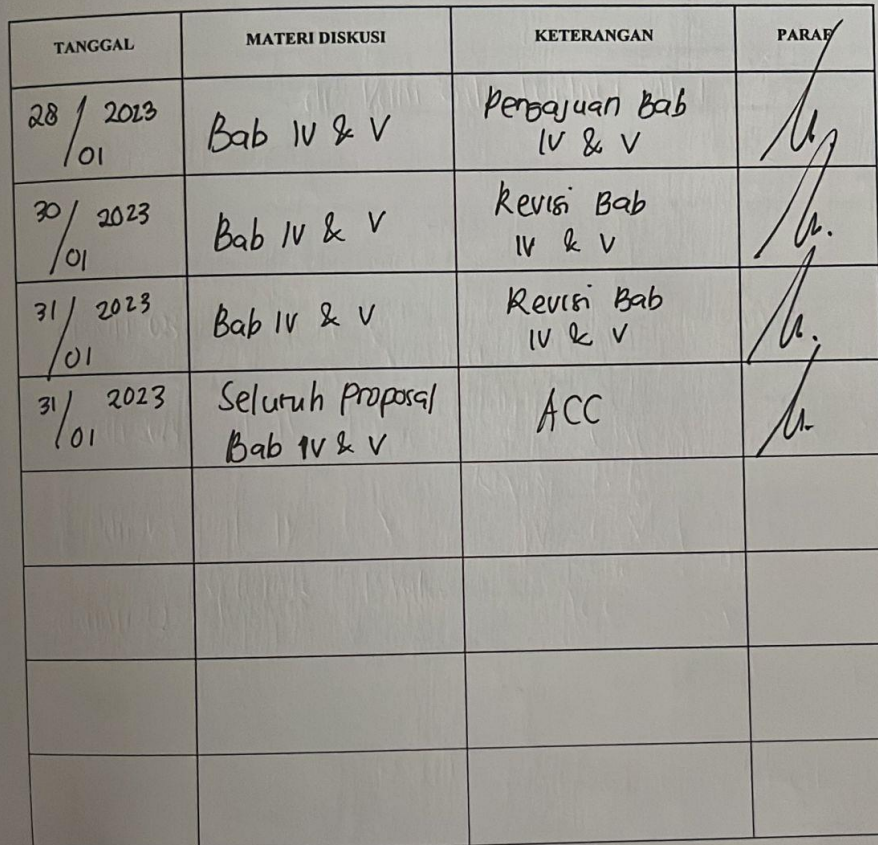 TANGGAL MATERI DISKUSI KETERANGAN PARAF
28/01 2023 Bab IV & V Pengajuan Bab
IV & V
30/01 2023 Bab IV & V Revisi Bab
IV & V
31/01 2023 Bab IV & V Revisi Bab
IV & V
31/01 2023 Seluruh Proposal ACC
Bab IV & V